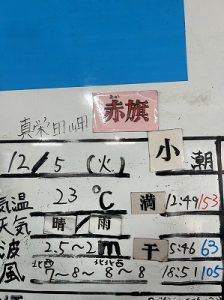 真栄田岬
赤旗
あか
12/5 (火) 小潮
気温 23℃ 満 12:49 153
天気 晴/雨
波 2.5~2m 干 5:46 63
風 北西 7~8~ 北北西 8~8 18:51 105